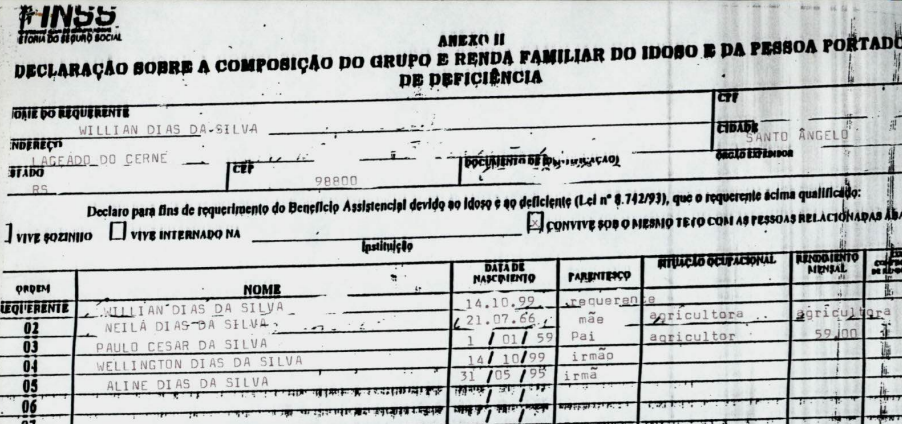 INSS
ETORIA DO SEGURO SOCIAL
ANEXO II
DECLARAÇÃO SOBRE A COMPOSIÇÃO DO GRUPO E RENDA FAMILIAR DO IDOSO E DA PESSOA PORTADO
DE DEFICIÊNCIA
NOME DO REQUERENTE CPF
WILLIAN DIAS DA SILVA
ENDEREÇO CIDADE
LAGEADO DO CERNE SANTO ÂNGELO
STADO CEP DOCUMENTO DE ÓRGÃO EXPEDIDOR
RS 98800
Declaro para fins de requerimento do Benefício Assistencial devido ao idoso e ao deficiente (Lei n° 8.742/93), que o requerente acima qualificado:
VIVE SOZINHO VIVE INTERNADO NA x CONVIVE SOB O MESMO TETO COM AS PESSOAS RELACIONADAS ABA
Instituição
ORDEM NOME DATA DE NASCIMENTO PARENTESCO SITUAÇÃO OCUPACIONAL RENDIMENTO MENSAL
REQUERENTE WILLIAN DIAS DA SILVA 14.10.99 requerente
02 NEILA DIAS DA SILVA 21.07.66 mãe agricultora agricultora
03 PAULO CESAR DA SILVA 1 / 01 / 59 Pai agricultor 59,00
04 WELLINGTON DIAS DA SILVA 14 / 10 / 99 irmão
05 ALINE DIAS DA SILVA 31 / 05 / 95 irmã
06 / /
07 / /